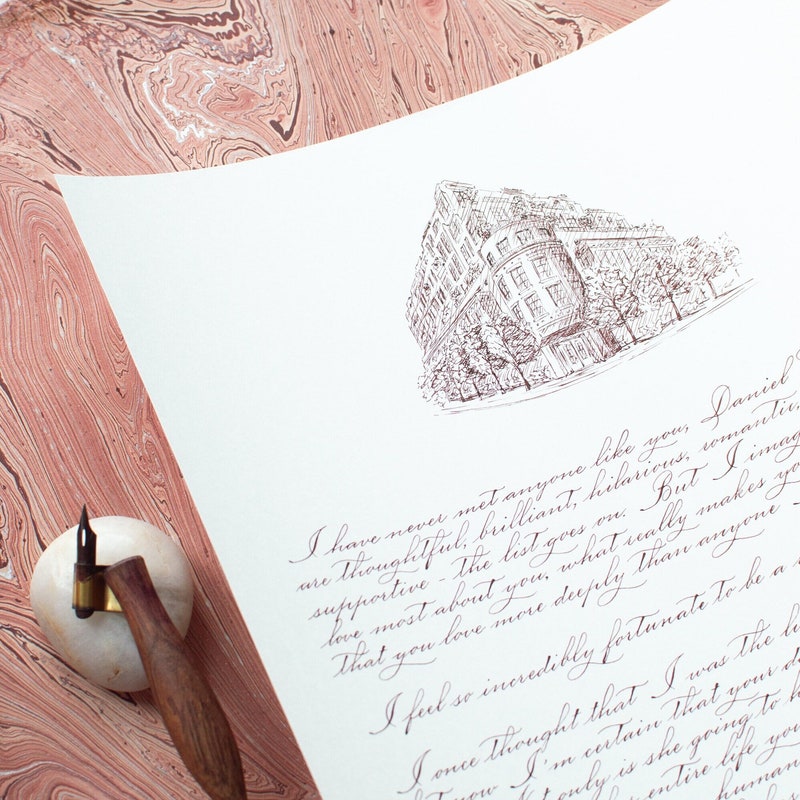 I have never met anyone like you, Daniel
are thoughtful, brilliant, hilarious, romantic,
supportive - the list goes on. But I
love most about you, what really makes
that you love more deeply than anyone
I feel so incredibly fortunate to be a
I once thought that I was the
now I'm certain that your
only is she going to
entire life
human